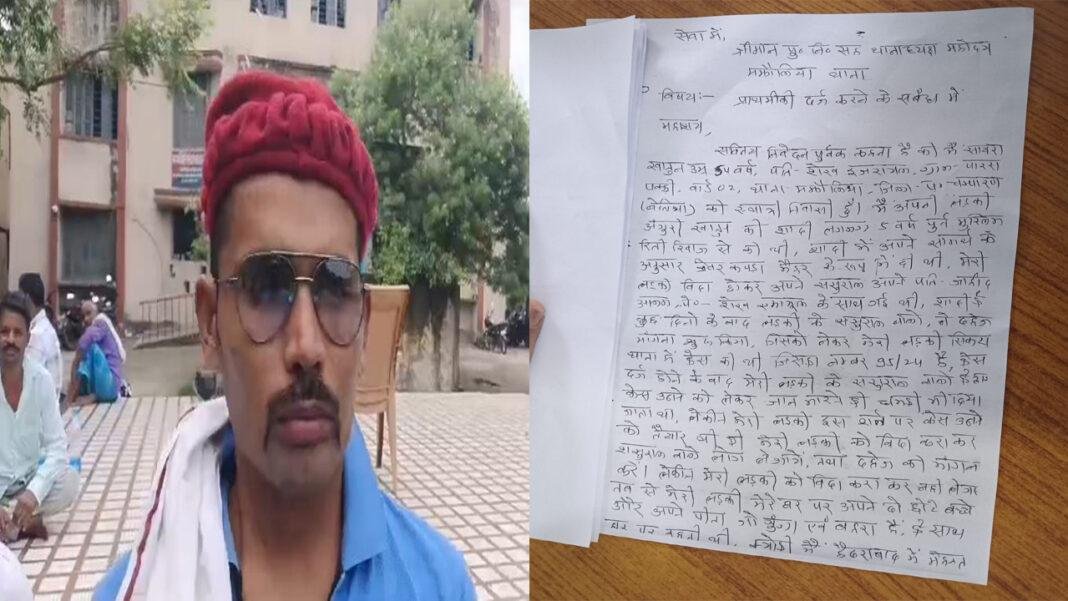 सेवा में,
श्रीमान पु० नि० सह थानाध्यक्ष महोदय
मझौलिया थाना
विषय:- प्राथमीकी दर्ज करने के संबंध में
महाशय,
सविनय निवेदन पुर्वक कहना है की मैं सायरा
खातुन उम्र 50 वर्ष, पति- शेख इजरायल, ग्राम- पारसा
वार्ड 02, थाना- मझौलिया, जिला- प० चम्पारण
(बेतिया) की स्थायी निवासी हुँ। मैं अपनी लड़की
अंगुरी खातुन की शादी लगभग 5 वर्ष पुर्व मुस्लिम
रिती रिवाज से की थी, शादी में अपने सामर्थ के
अनुसार जेवर कपड़ा के रूप में दी थी, मेरी
लड़की विदा होकर अपने ससुराल अपने पति- जाहीद
के साथ गई थी, शादी के
कुछ दिनों के बाद लड़की के ससुराल वाले, ने दहेज
मांगना शुरू किया, जिसको लेकर मेरी लड़की
थाना में केस की थी जिसका नम्बर 95/24 है, केस
दर्ज होने के बाद मेरी लड़की के ससुराल वालो के द्वारा
केस उठाने को लेकर जान मारने की धमकी भी दिया
जाता था, लेकीन मेरी लड़की इस शर्त पर केस उठाने
को तैयार थी की मेरी लड़की को विदा करा कर
ससुराल वाले लोग ले जायेंगे, तथा दहेज की मांग न
करें। लेकीन मेरी लड़की को विदा करा कर नही ले गया
तब से मेरी लड़की मेरे घर पर अपने दो छोटे बच्चे
और अपने पोता, जो एवं बहरा है, के साथ
घर पर रहती थी, क्योंकी मैं हैदराबाद में मेहनत